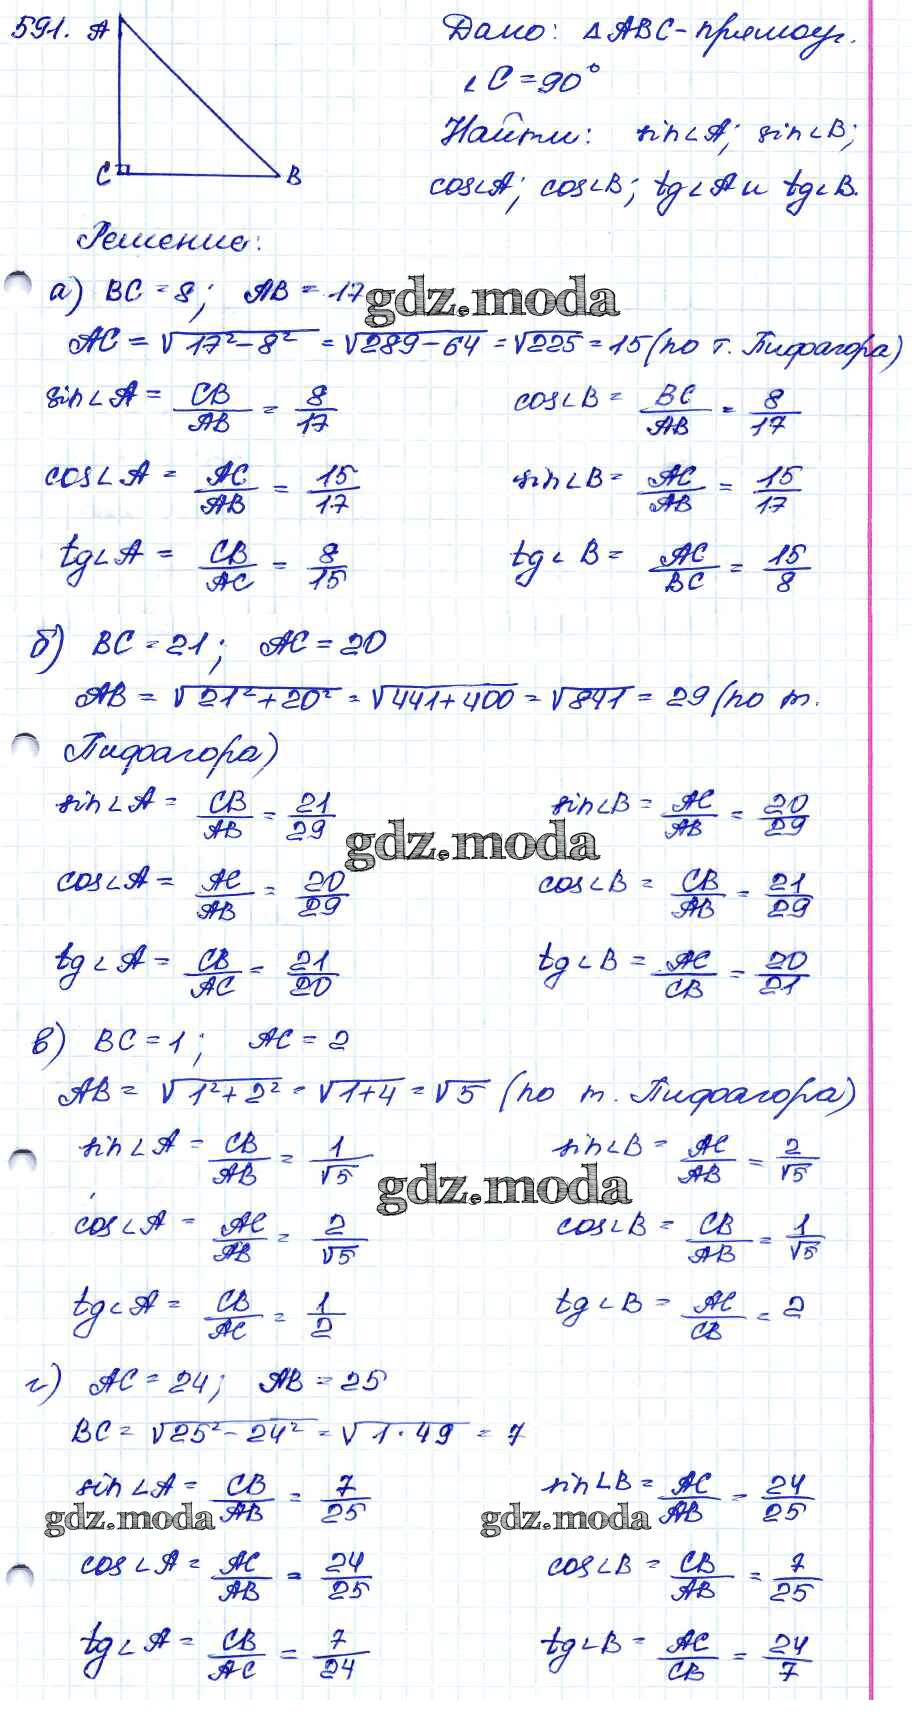 591. A
Дано: △ABC - прямоуг.
∠C = 90°
Найти: sin∠A; sin∠B;
C B
cos∠A; cos∠B; tg∠A и tg∠B.
Решение:
а) BC = 8; AB = 17
gdz.moda
AC = √(17² - 8²) = √(289 - 64) = √225 = 15 (по т. Пифагора)
sin∠A = CB/AB = 8/17 cos∠B = BC/AB = 8/17
cos∠A = AC/AB = 15/17 sin∠B = AC/AB = 15/17
tg∠A = CB/AC = 8/15 tg∠B = AC/BC = 15/8
б) BC = 21; AC = 20
AB = √(21² + 20²) = √(441 + 400) = √841 = 29 (по т.
Пифагора)
sin∠A = CB/AB = 21/29 sin∠B = AC/AB = 20/29
gdz.moda
cos∠A = AC/AB = 20/29 cos∠B = CB/AB = 21/29
tg∠A = CB/AC = 21/20 tg∠B = AC/CB = 20/21
в) BC = 1; AC = 2
AB = √(1² + 2²) = √(1 + 4) = √5 (по т. Пифагора)
sin∠A = CB/AB = 1/√5 sin∠B = AC/AB = 2/√5
gdz.moda
cos∠A = AC/AB = 2/√5 cos∠B = CB/AB = 1/√5
tg∠A = CB/AC = 1/2 tg∠B = AC/CB = 2
г) AC = 24; AB = 25
BC = √(25² - 24²) = √(1 · 49) = 7
sin∠A = CB/AB = 7/25 sin∠B = AC/AB = 24/25
gdz.moda gdz.moda
cos∠A = AC/AB = 24/25 cos∠B = CB/AB = 7/25
tg∠A = CB/AC = 7/24 tg∠B = AC/CB = 24/7